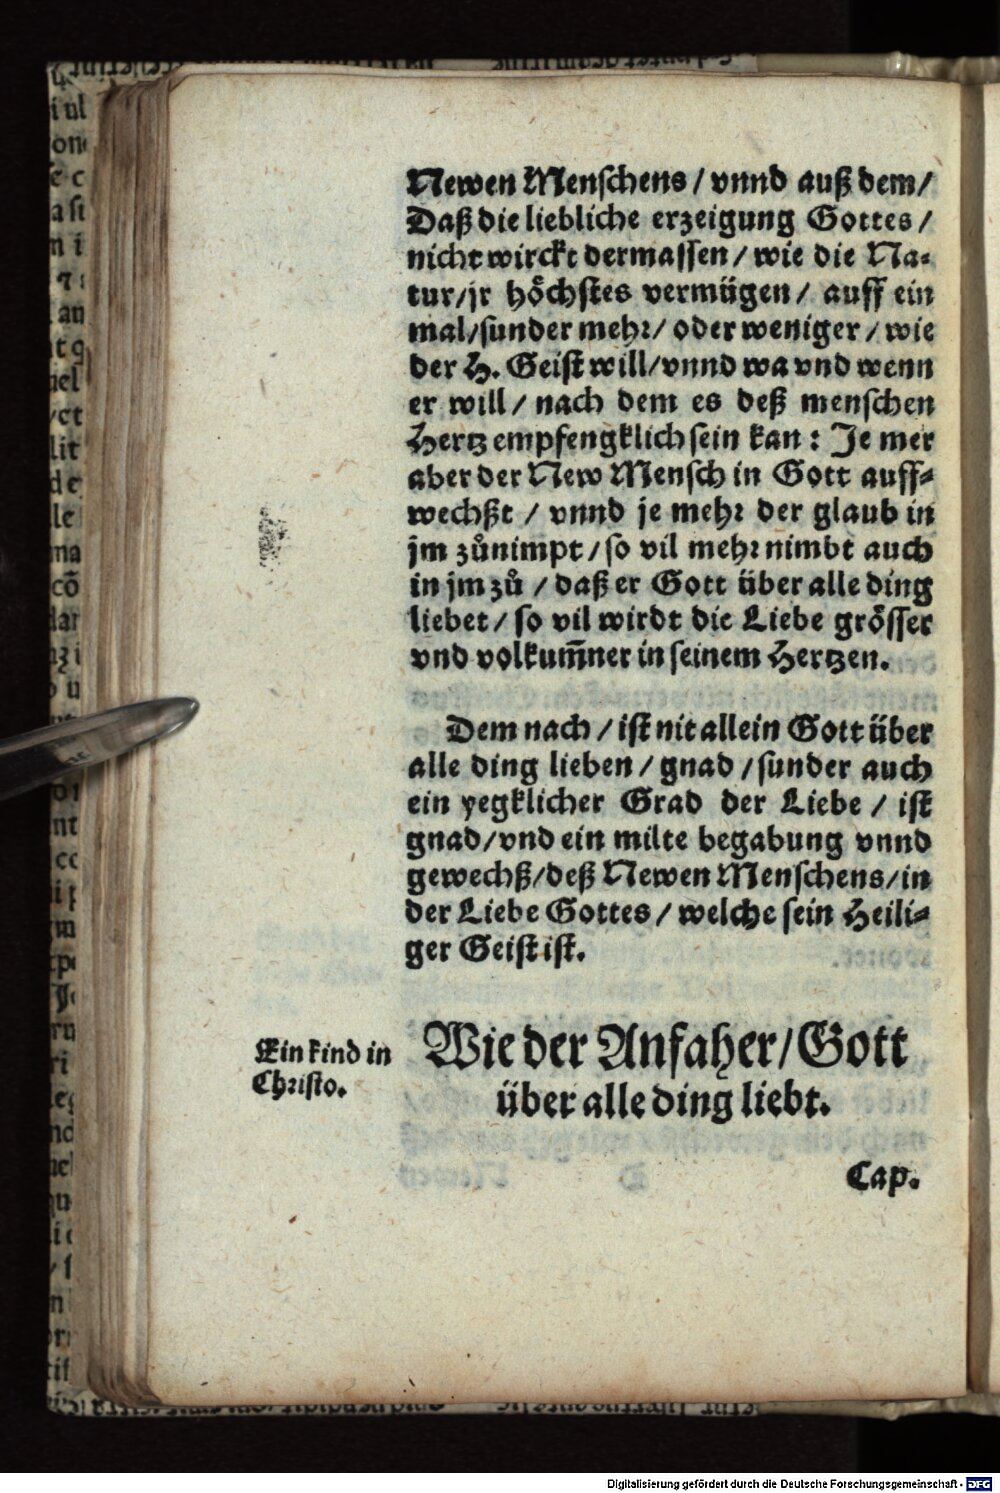 Newen Menschens / vnnd auß dem /
Daß die liebliche erzeigung Gottes /
nicht wirckt dermassen / wie die Na⸗
tur / jr hoͤchstes vermügen / auff ein
mal / sunder mehr / oder weniger / wie
der H. Geist will / vnnd wa vnd wenn
er will / nach dem es deß menschen
Hertz empfengklich sein kan : Je mer
aber der New Mensch in Gott auff⸗
wechßt / vnnd je mehr der glaub in
jm zuͦnimpt / so vil mehr nimbt auch
in jm zuͦ / daß er Gott über alle ding
liebet / so vil wirdt die Liebe groͤsser
vnd volkum̃ner in seinem Hertzen.
Dem nach / ist nit allein Gott über
alle ding lieben / gnad / sunder auch
ein yegklicher Grad der Liebe / ist
gnad / vnd ein milte begabung vnnd
gewechß / deß Newen Menschens / in
der Liebe Gottes / welche sein Heili⸗
ger Geist ist.
Ein kind in
Christo.
Wie der Anfaher / Gott
über alle ding liebt.
Cap.
Digitalisierung gefördert durch die Deutsche Forschungsgemeinschaft - DFG